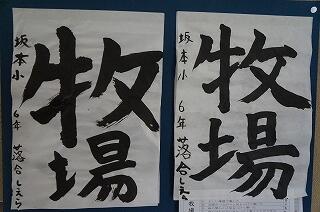 牧場
坂本小 6年 落合しえら
牧場
坂本小 6年 落合しえら
牧場